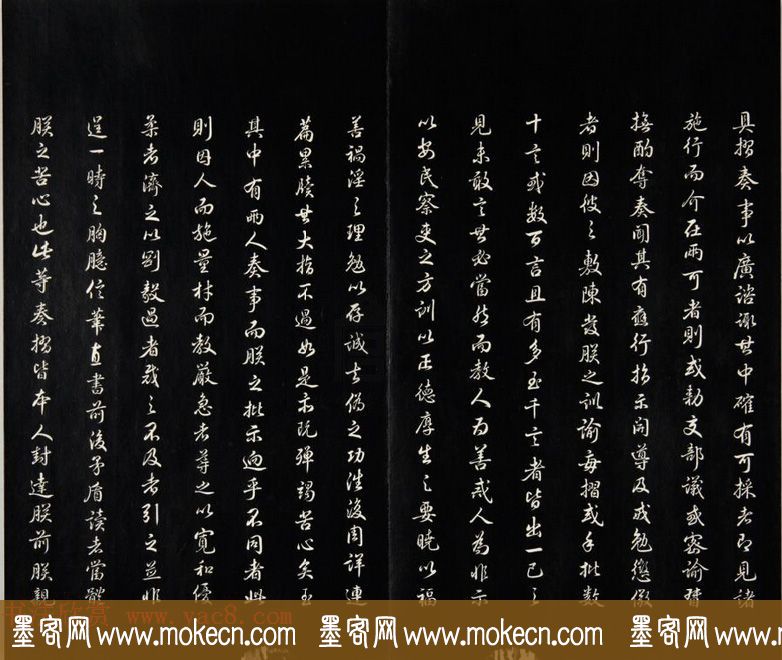 具摺奏事以廣諮諏其中確有可採者即見諸
施行而介在兩可者則或勅交部議或密諭督
撫酌奪奏聞其有應行指示開導及戒勉懲儆
者則因彼之敷陳發朕之訓諭每摺或手批數
十言或數百言且有多至千言者皆出一己之
見未敢言其必當然而教人為善戒人為非示
以安民察吏之方訓以正德厚生之要曉以福
善禍淫之理勉以存誠去偽之功往復周詳連
篇累牘其大指不過如是亦既殫竭苦心矣至
其中有兩人奏事而朕之批示迥乎不同者此
則因人而施量材而教嚴急者導之以寬和優
柔者濟之以剛毅過者裁之不及者引之並非
逞一時之胸臆信筆直書前後矛盾讀者當體
朕之苦心也此等奏摺皆本人封達朕前朕親
书法欣赏 www.yac8.com
墨客网 www.mokecn.com 墨客网 www.mokecn.com 墨客网 www.mokecn.com